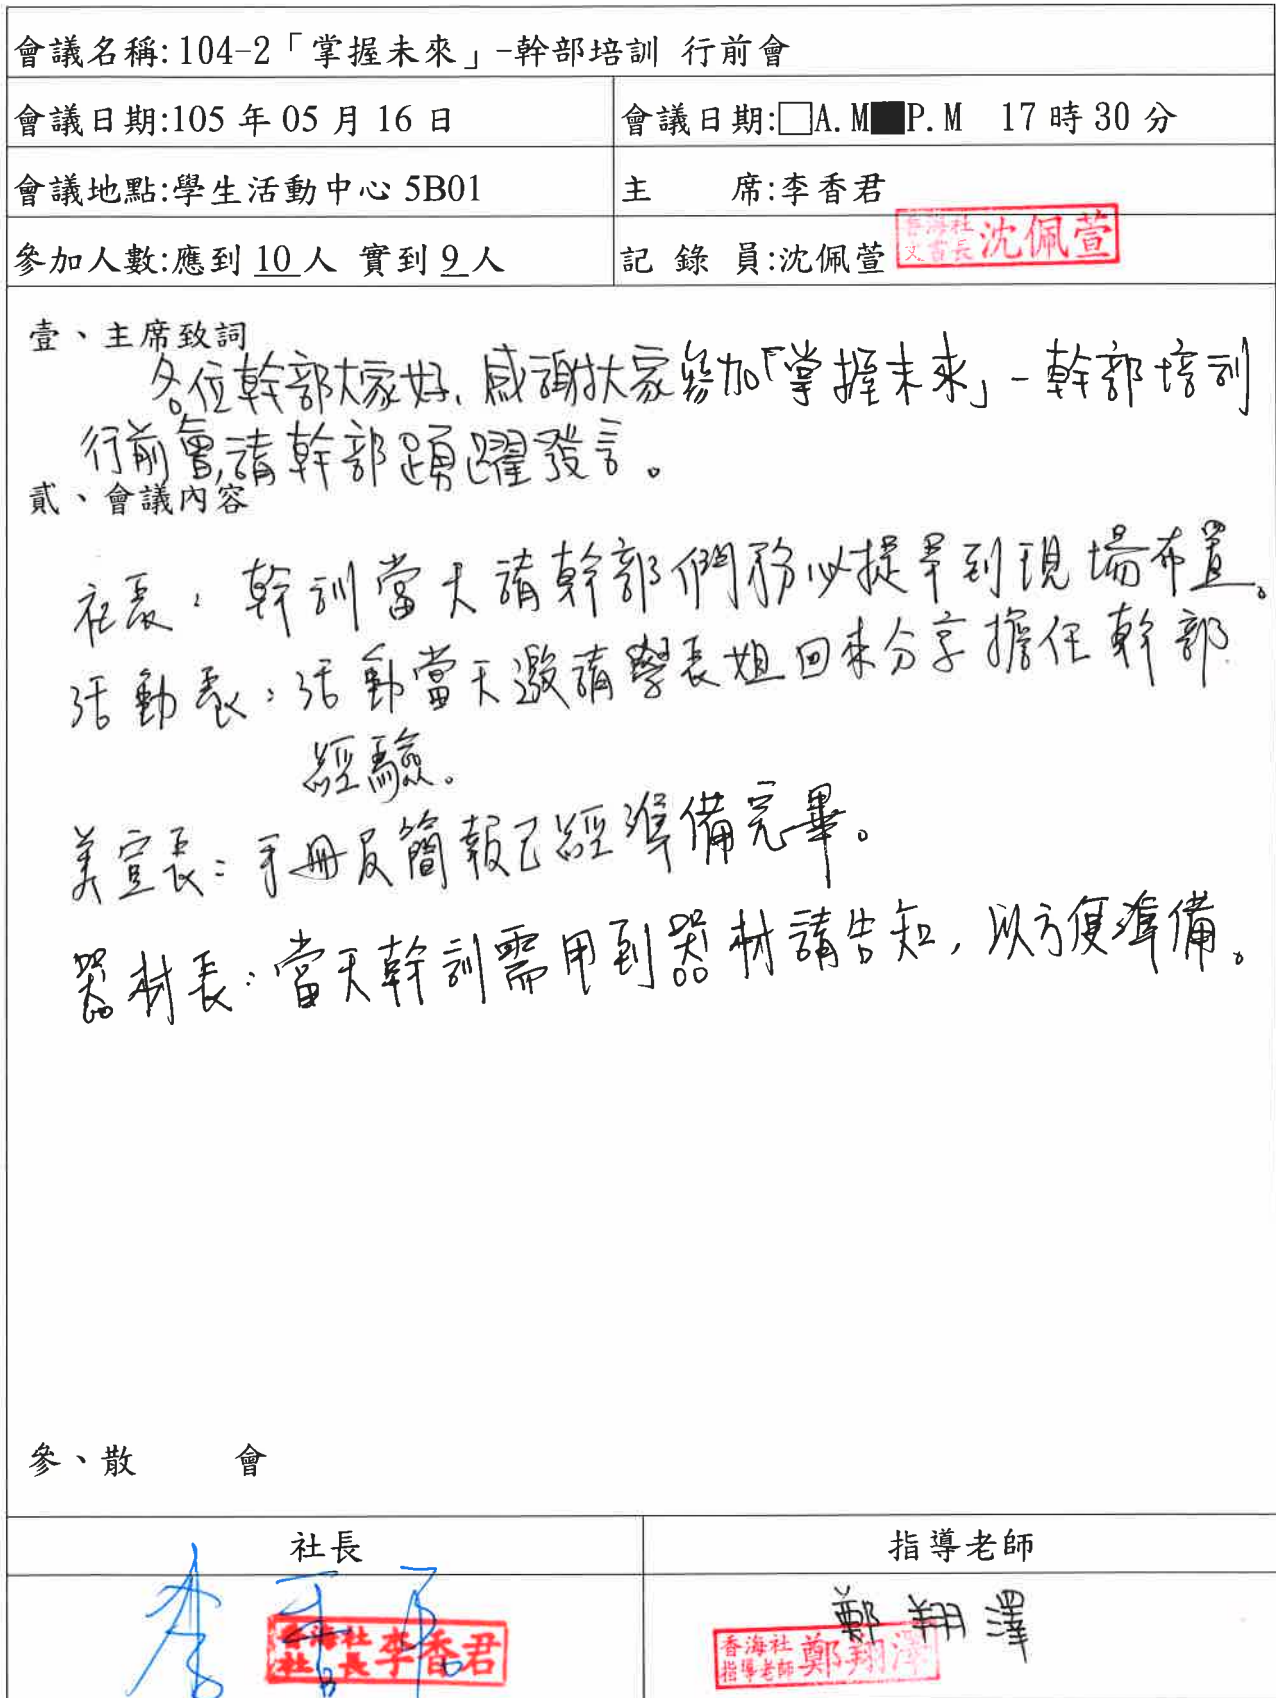 會議名稱:104-2「掌握未來」-幹部培訓 行前會
會議日期:105 年 05 月 16 日
會議日期:□A.M■P.M 17 時 30 分
會議地點:學生活動中心 5B01
主 席:李香君
參加人數:應到 10 人 實到 9 人
記 錄 員:沈佩萱
香海社
文書長 沈佩萱
壹、主席致詞
各位幹部大家好,感謝大家參加「掌握未來」-幹部培訓
行前會,請幹部踴躍發言。
貳、會議內容
社長:幹訓當天請幹部們務必提早到現場布置。
活動長:活動當天邀請學長姐回來分享擔任幹部
經驗。
美宣長:手冊及簡報已經準備完畢。
器材長:當天幹訓需用到器材請告知,以方便準備。
參、散 會
社長
指導老師
李香君
香海社
社 長 李香君
鄭翔澤
香海社
指導老師 鄭翔澤